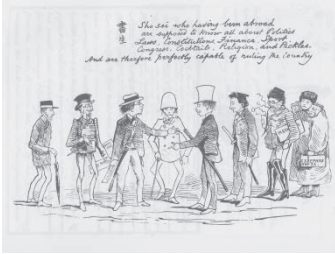 書生
She sei who having been abroad
are supposed to know all about Politics
Laws, Constitutions, Finance, Sport
Congress, Cocktails, Religion, and Pickles,
And are therefore perfectly capable of ruling the Country